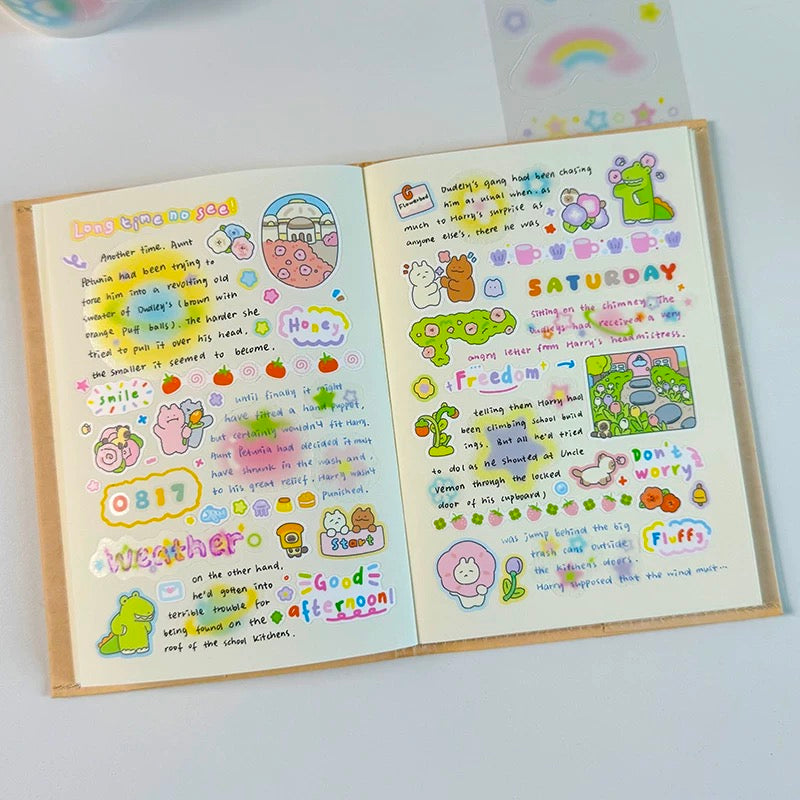 Long time no see!
Another time, Aunt
Petunia had been trying to
force him into a revolting old
sweater of Dudley's (brown with
orange puff balls). The harder she
tried to pull it over his head,
the smaller it seemed to become.
Honey
Smile
until finally it might
have fitted a hand puppet,
but certainly wouldn't fit Harry.
Aunt Petunia had decided it must
have shrunk in the wash and,
to his great relief, Harry wasn't
punished.
0817
Weather
Start
on the other hand,
he'd gotten into
terrible trouble for
being found on the
roof of the school kitchens.
Good
afternoon!
Flowerbed
Dudely's gang had been chasing
him as usual when, as
much to Harry's surprise as
anyone else's, there he was
SATURDAY
Sitting on the chimney. The
Dudleys had received a very
angry letter from Harry's headmistress.
Freedom
telling them Harry had
been climbing school build
ings. But all he'd tried
to do( as he shouted at Uncle
Vernon through the locked
door of his cupboard)
Don't
worry
was jump behind the big
trash cans outside
the kitchen doors.
Harry supposed that the wind must...
Fluffy